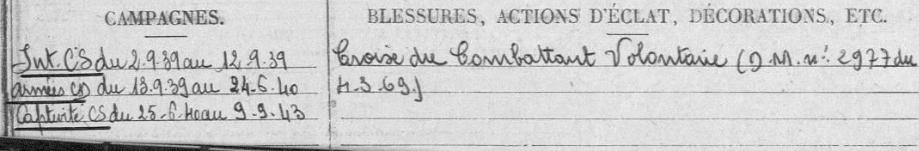 CAMPAGNES.
Int. CS du 2.9.39 au 12.9.39
armées CD du 13.9.39 au 24.6.40
Captivité CS du 25-6.40 au 9-9.43
BLESSURES, ACTIONS D'ÉCLAT, DÉCORATIONS, ETC.
Croix du Combattant Volontaire (D.M. n°: 2977 du
4.3.69.)